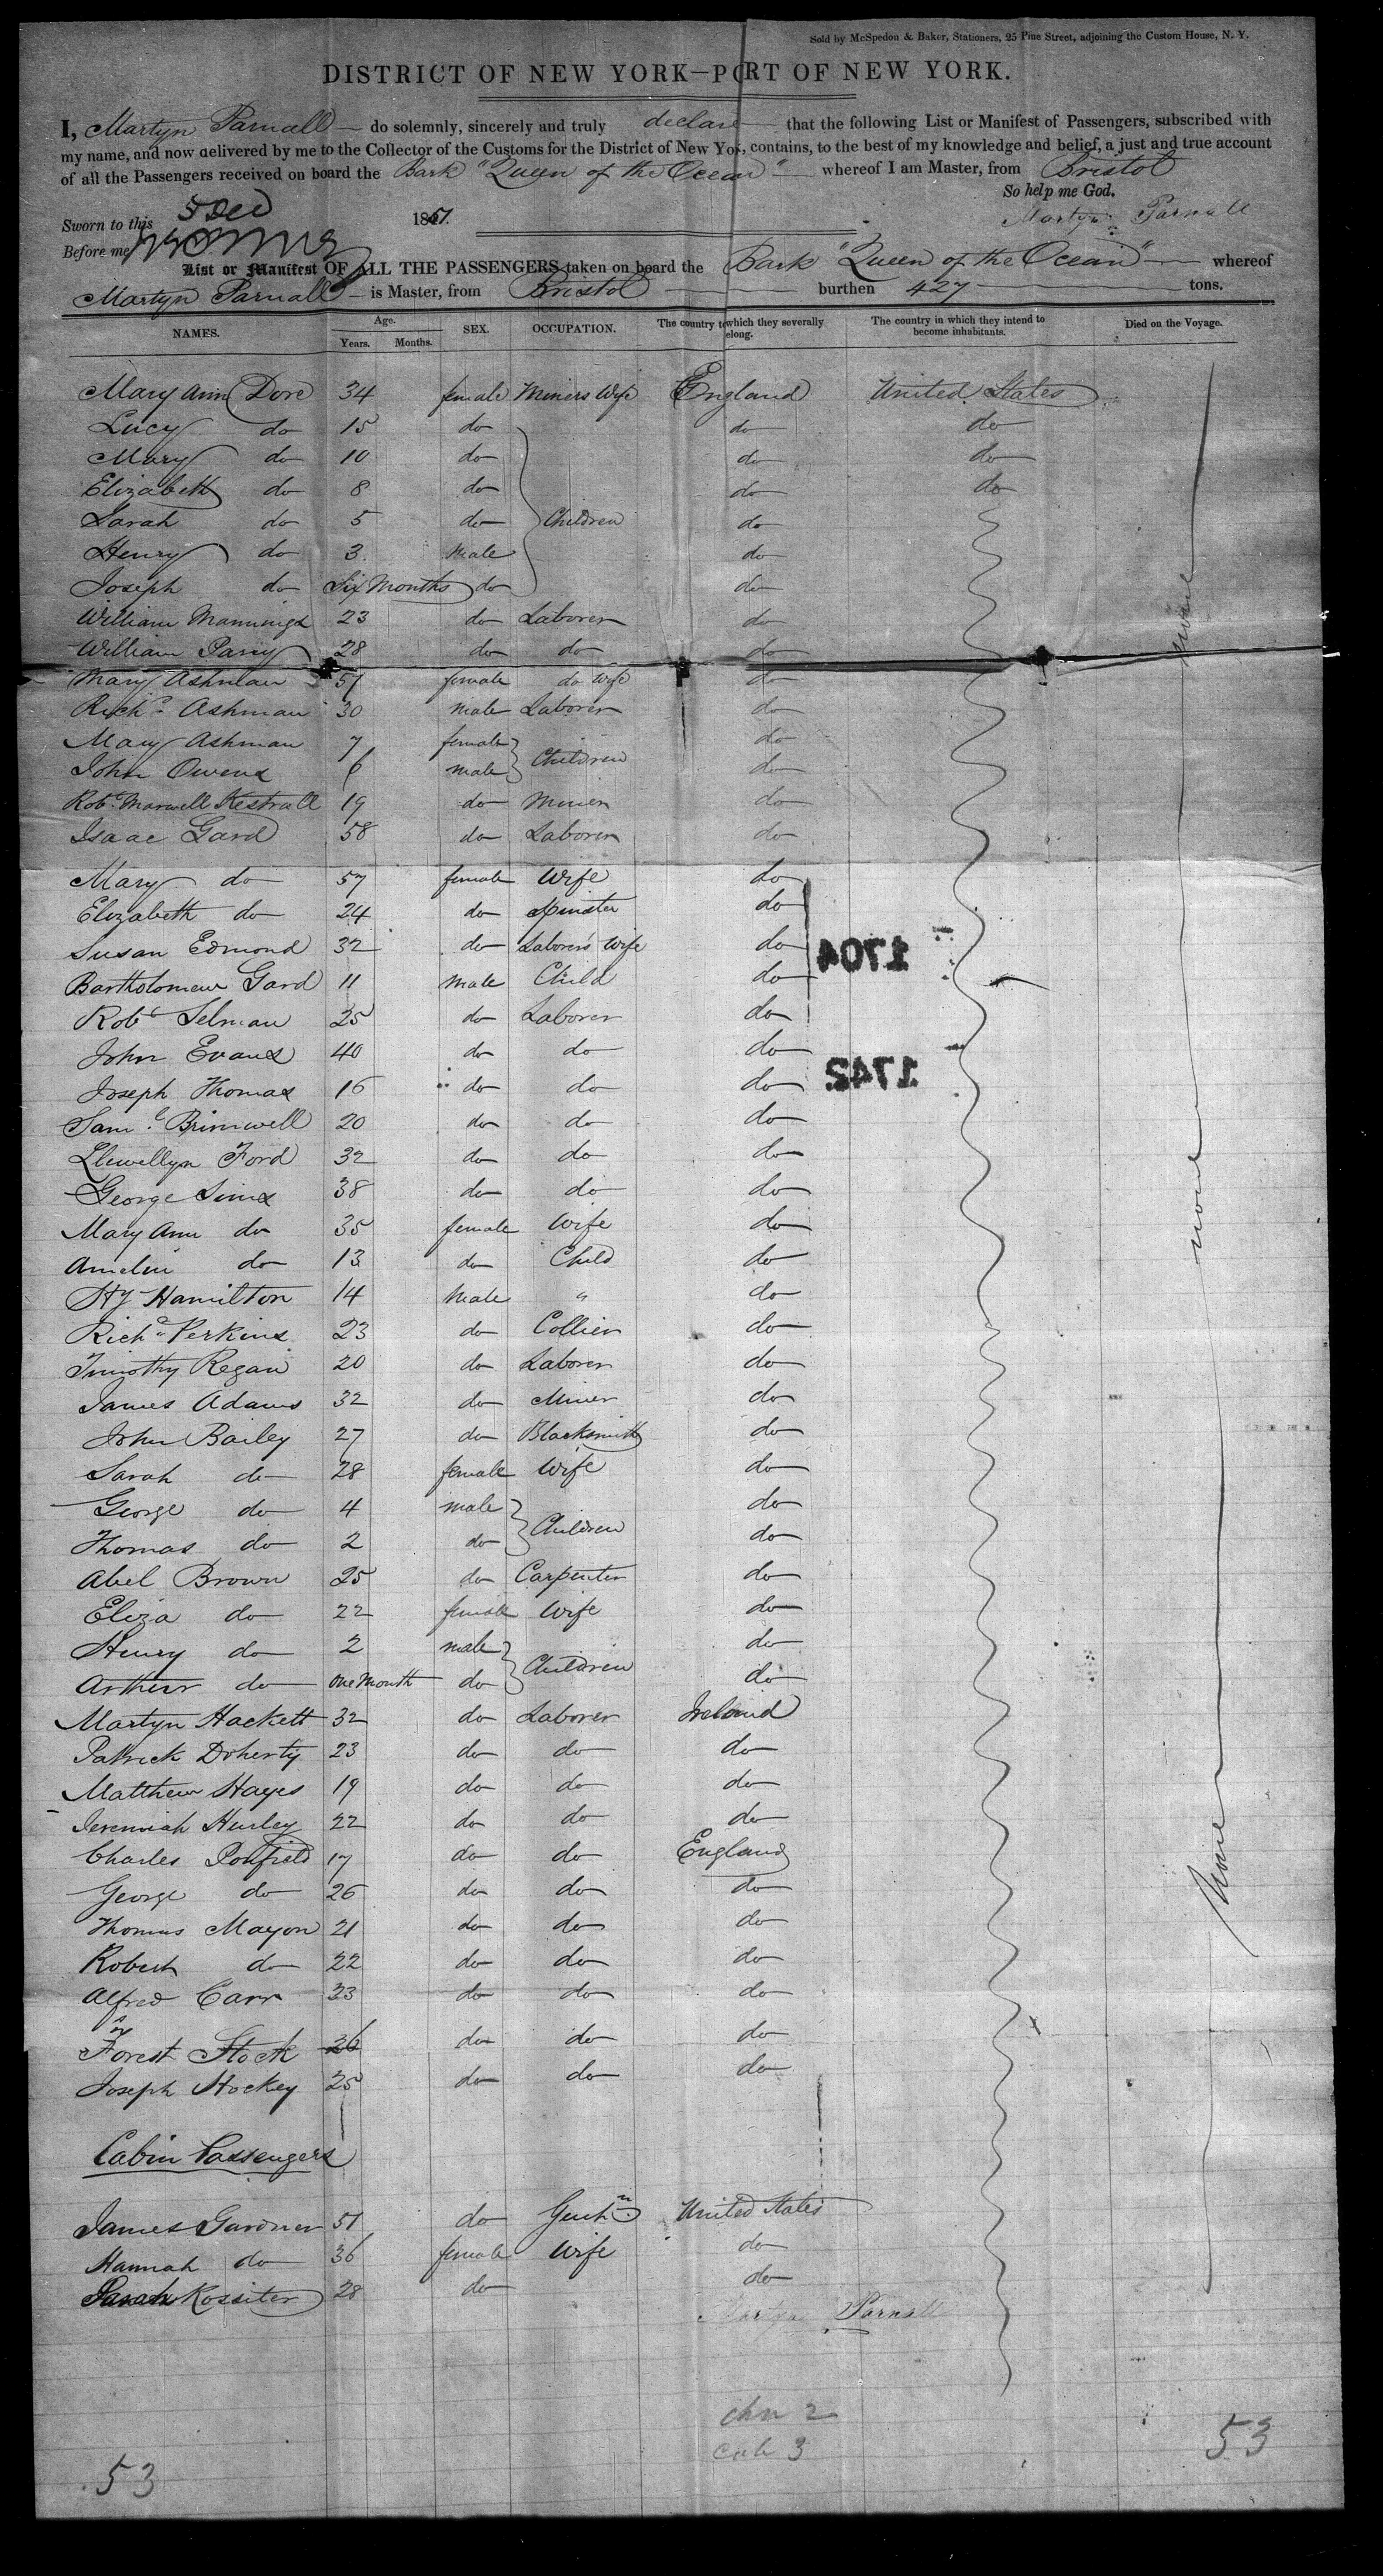 Sold by McSpedon & Baker, Stationers, 25 Pine Street, adjoining the Custom House, N. Y.
DISTRICT OF NEW YORK—PORT OF NEW YORK.
I, Martyn Parnall do solemnly, sincerely and truly declare that the following List or Manifest of Passengers, subscribed with
my name, and now delivered by me to the Collector of the Customs for the District of New Yor, contains, to the best of my knowledge and belief, a just and true account
of all the Passengers received on board the Bark "Queen of the Ocean" whereof I am Master, from Bristol
So help me God.
Sworn to this 5 Dec 1851. Martyn Parnall
Before me
List or Manifest OF ALL THE PASSENGERS taken on board the Bark "Queen of the Ocean" whereof
Martyn Parnall is Master, from Bristol burthen 427 tons.
NAMES. Age. Years. Months. SEX. OCCUPATION. The country to which they severally elong. The country in which they intend to become inhabitants. Died on the Voyage.
Mary Ann Dore 34 female Miners Wife England United States
Lucy do 15 do do do
Mary do 10 do do do
Elizabeth do 8 do do do
Sarah do 5 do Children do
Henry do 3 Male do
Joseph do Six Months do do none
William Mannings 23 do Laborer do
William Parry 28 do do do
Mary Ashman 51 female do Wife do
Richd. Ashman 30 Male Laborer do
Mary Ashman 7 female Children do
John Owens 6 male do
Robt. Maxwell 19 do Miner do
Isaac Gard 58 do Laborer do
Mary do 57 female Wife do
Elizabeth do 24 do Spinster do
Susan Edmond 32 do Laborer's Wife do 1704
Bartholomew Gard 11 Male Child do
Robt Selman 25 do Laborer do
John Evans 40 do do do
Joseph Thomas 16 do do do 1742
Saml. Brimwell 20 do do do
Llewellyn Ford 32 do do do
George Sims 38 do do do none
Mary Ann do 35 female Wife do
Amelia do 13 do Child do
Hy Hamilton 14 Male " do
Richd. Perkins 23 do Collier do
Timothy Regan 20 do Laborer do
James Adams 32 do Miner do
John Bailey 27 do Blacksmith do
Sarah do 28 female Wife do
George do 4 male Children do
Thomas do 2 do do
Abel Brown 25 do Carpenter do
Eliza do 22 female Wife do
Henry do 2 male Children do
Arthur do One Month do do
Martyn Hackett 32 do Laborer Ireland
Patrick Doherty 23 do do do
Matthew Hayes 19 do do do
Jeremiah Hurley 22 do do do
Charles Ponfield 17 do do England none
George do 26 do do do
Thomas Mayon 21 do do do
Robert do 22 do do do
Alfred Carr 23 do do do
Forest Stock 26 do do do
Joseph Hockey 25 do do do
Cabin Passengers
James Gardner 51 do Gentn. United States
Hannah do 36 female Wife do
Sarah Rossiter 28 do do
Martyn Parnall
chn 2
cab 3
53
53